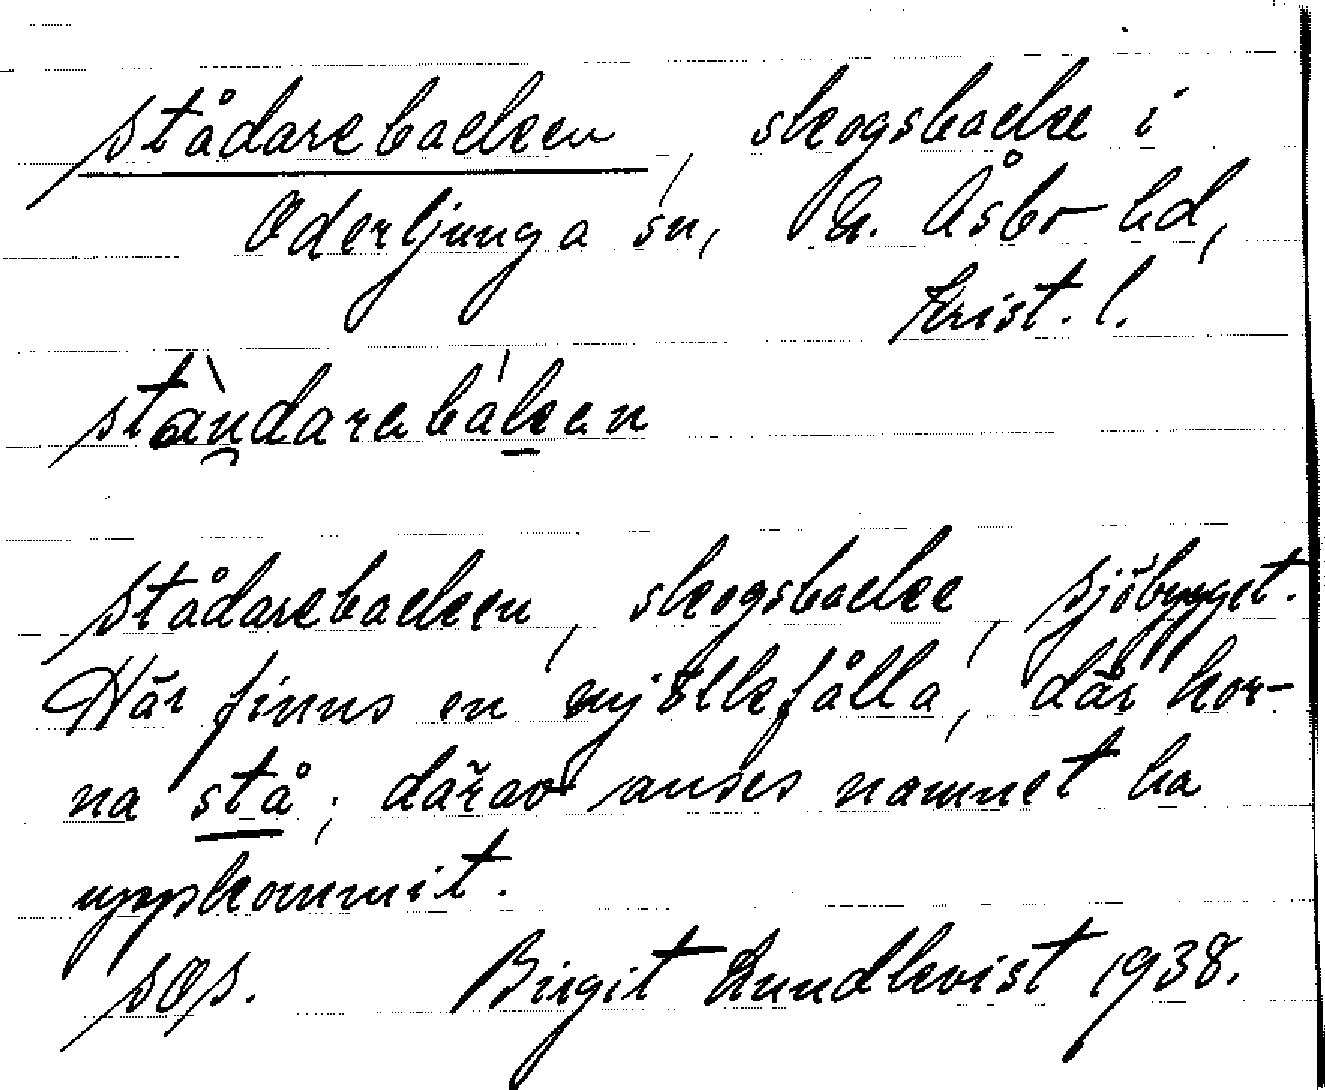 Stådarebacken, skogsbacke i
Oderljunga sn, N. Åsbo hd,
Krist. l.
ståndarebaken
Stådarebacken, skogsbacke, Sjöbygget.
Här finns en mjölkfålla, där kor-
na stå; därav anses namnet ha
uppkommit.
SOS. Birgit Lundkvist 1938.